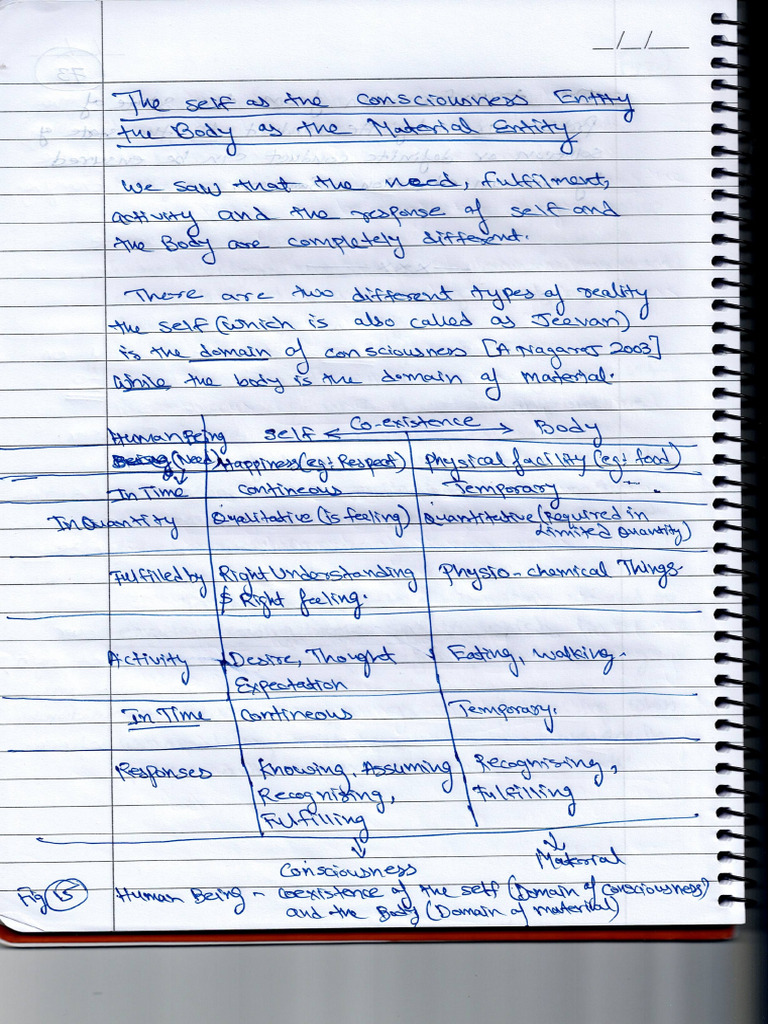 _/_/__
The self as the consciousness Entity
the Body as the Material Entity
We saw that the need, fulfilment,
activity and the response of self and
the Body are completely different.
There are two different types of reality
the self (which is also called as Jeevan)
is the domain of consciousness [A Nagaraj 2003]
while the body is the domain of material.
Human Being self <- Co-existence -> Body
Being (Need) Happiness (eg: Respect) Physical facility (eg: food)
In Time contineous Temporary
In Quantity Qualitative (is feeling) Quantitative (Required in
Limited Quantity)
Fulfilled by Right Understanding Physio-chemical Things.
& Right feeling.
Activity Desire, Thought Eating, walking.
Expectation
In Time contineous Temporary.
Responses Knowing, Assuming Recognising,
Recognizing, Fulfilling
Fulfilling
Consciousness Material
Fig 15 Human Being - coexistence of the self (Domain of Consciousness)
and the Body (Domain of material)